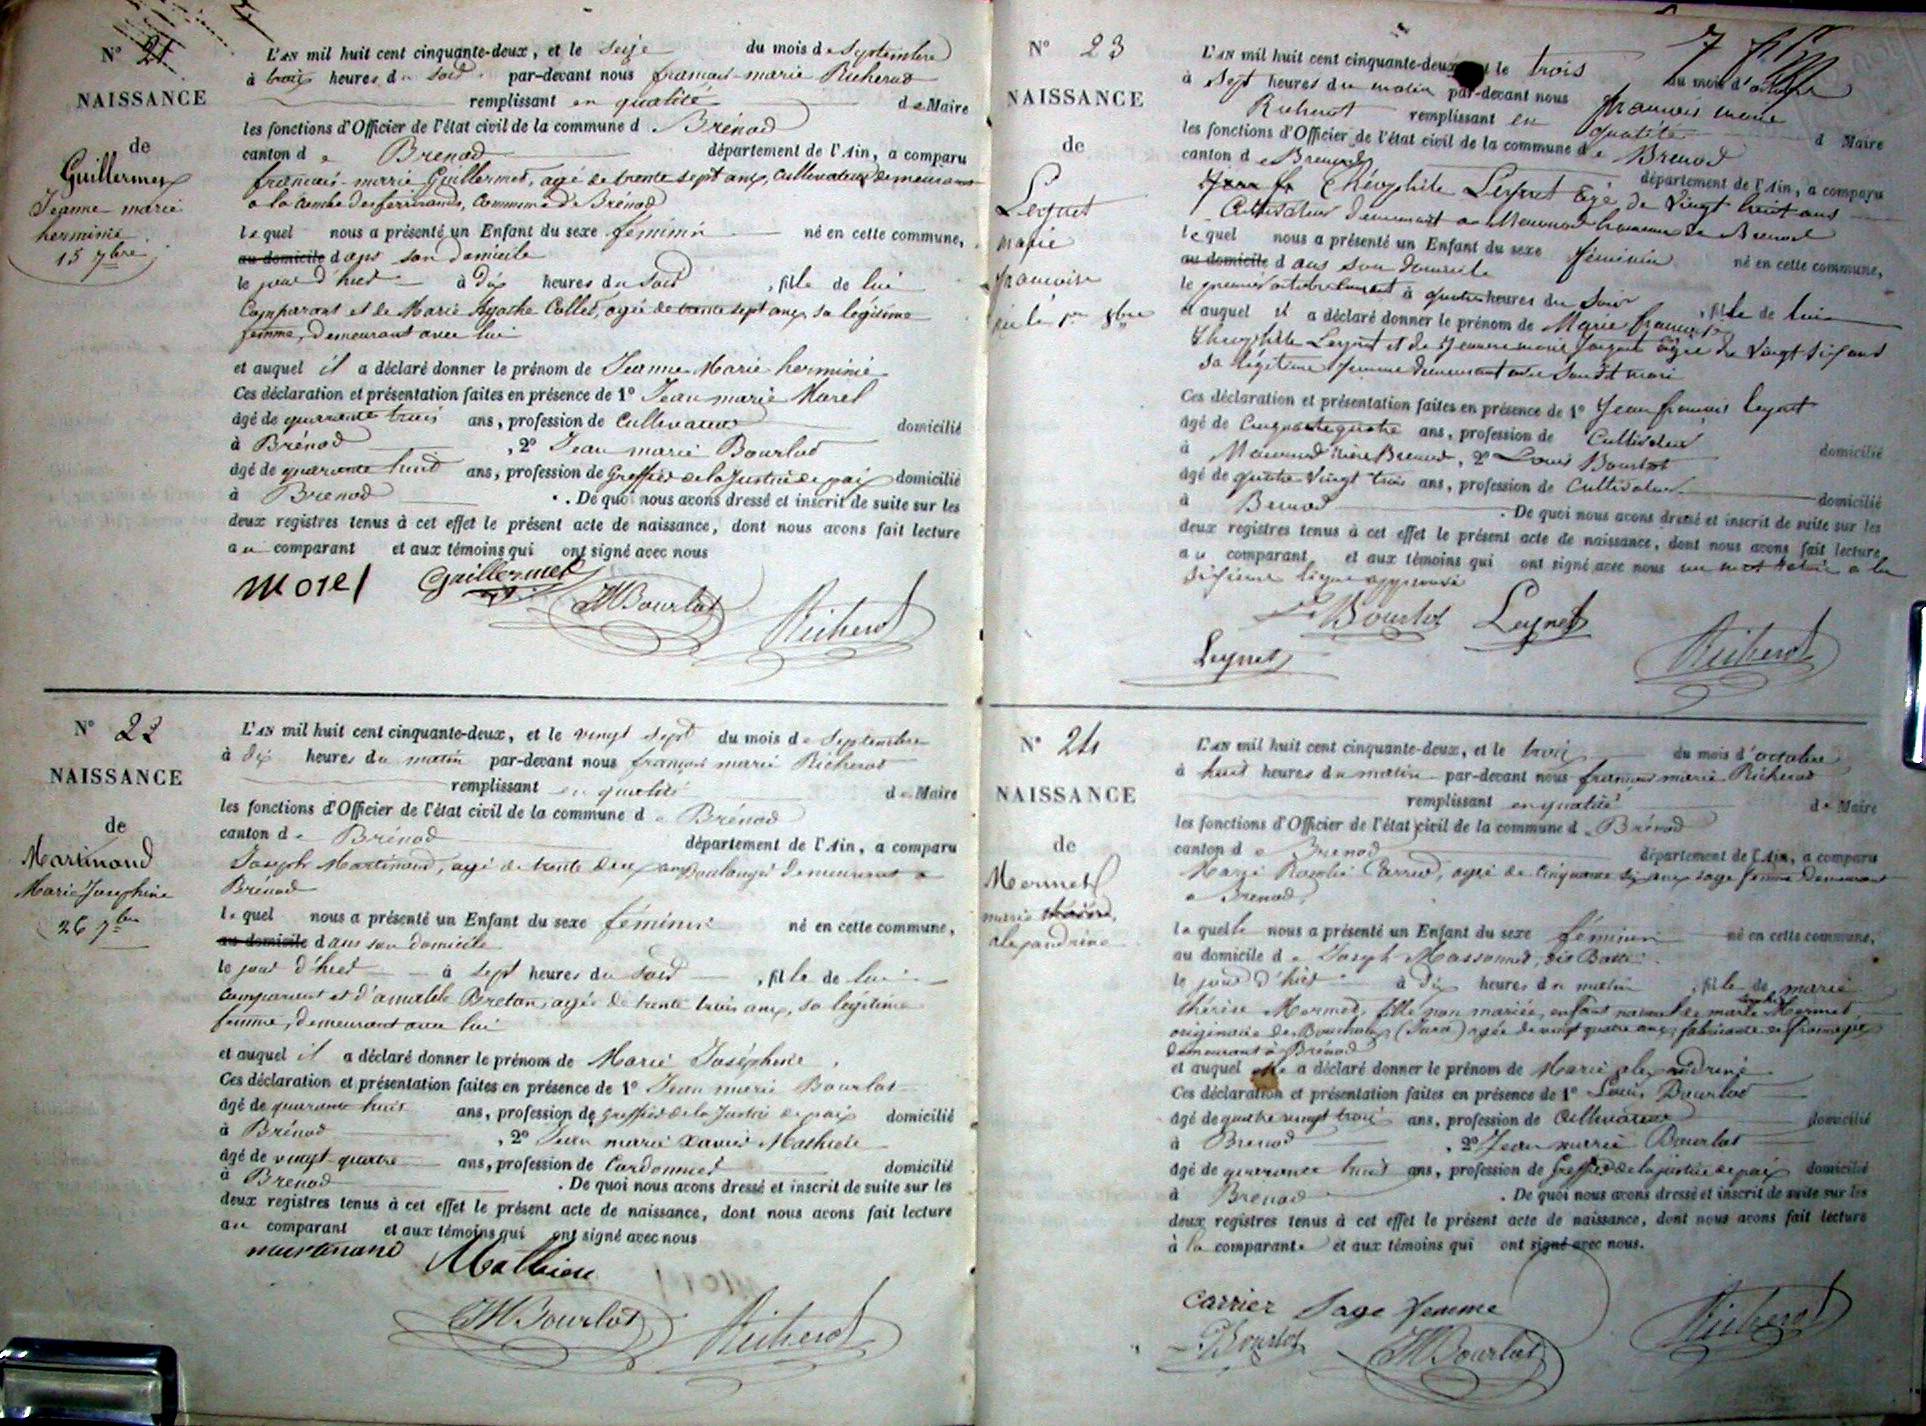 N° 21
NAISSANCE
de
Guillermet
Jeanne marie
herminie
15 7bre
L'AN mil huit cent cinquante-deux, et le seize du mois de Septembre
à trois heures du soir par-devant nous françois-marie Richerot
remplissant en qualité de Maire
les fonctions d'Officier de l'état civil de la commune d Brénod
canton de Brenod département de l'Ain, a comparu
françois-marie Guillermet, agé de trente sept ans, Cultivateur demeurant
a la Combe des ferrands, Commune de Brénod
lequel nous a présenté un Enfant du sexe féminin né en cette commune,
au domicile dans son domicile
le jour d'hier à dix heures du soir, fille de lui
Comparant et de Marie Agathe Collet, agée de trente sept ans, sa légitime
femme, demeurant avec lui
et auquel il a déclaré donner le prénom de Jeanne Marie herminie
Ces déclaration et présentation faites en présence de 1° Jean marie Morel
âgé de quarante trois ans, profession de Cultivateur domicilié
à Brénod, 2° Jean marie Bourlot
âgé de quarante huit ans, profession de Greffier de la Justice de paix domicilié
à Brenod. De quoi nous avons dressé et inscrit de suite sur les
deux registres tenus à cet effet le présent acte de naissance, dont nous avons fait lecture
au comparant et aux témoins qui ont signé avec nous
Morel Guillermet
JMBourlot Richerot
N° 22
NAISSANCE
de
Martinand
Marie Josephine
26 7bre
L'AN mil huit cent cinquante-deux, et le vingt sept du mois de Septembre
à dix heures du matin par-devant nous françois marie Richerot
remplissant en qualité de Maire
les fonctions d'Officier de l'état civil de la commune de Brénod
canton de Brénod département de l'Ain, a comparu
Joseph Martinand, agé de trente deux ans Boulanger demeurant a
Brenod
lequel nous a présenté un Enfant du sexe féminin né en cette commune,
au domicile dans son domicile
le jour d'hier à sept heures du soir, fille de lui
Comparant et d'amable Breton, agée de trente trois ans, sa légitime
femme, demeurant avec lui
et auquel il a déclaré donner le prénom de Marie Joséphine
Ces déclaration et présentation faites en présence de 1° Jean marie Bourlot
âgé de quarante huit ans, profession de greffier de la Justice de paix domicilié
à Brénod, 2° Jean marie xavier Mathieu
âgé de vingt-quatre ans, profession de Cordonnier domicilié
à Brenod. De quoi nous avons dressé et inscrit de suite sur les
deux registres tenus à cet effet le présent acte de naissance, dont nous avons fait lecture
au comparant et aux témoins qui ont signé avec nous
martinand Mathieu
JMBourlot Richerot
N° 23
NAISSANCE
de
Leynet
marie
francoise
née le 1er 8bre
L'AN mil huit cent cinquante-deux et le trois du mois d'octobre
à Sept heures du matin par-devant nous francois marie
Richerot remplissant en qualité d Maire
les fonctions d'Officier de l'état civil de la commune de Brenod
canton de Brenod département de l'Ain, a comparu
Théophile Leynet agé de vingt huit ans
Cultivateur demeurant a Meunod hameau de Brenod
lequel nous a présenté un Enfant du sexe féminin né en cette commune,
au domicile dans son domicile
le premier octobre courant à quatre heures du soir, fille de lui
et auquel il a déclaré donner le prénom de Marie francoise
Theophile Leynet et de Jeanne marie agée de vingt six ans
sa légitime femme demeurant avec sondit mari
Ces déclaration et présentation faites en présence de 1° Jean francois Leynet
âgé de Cinquante quatre ans, profession de Cultivateur domicilié
à Meunod rière Brenod, 2° Louis Bourlot
âgé de quatre vingt trois ans, profession de Cultivateur domicilié
à Brenod. De quoi nous avons dressé et inscrit de suite sur les
deux registres tenus à cet effet le présent acte de naissance, dont nous avons fait lecture
au comparant et aux témoins qui ont signé avec nous un mot a la
sixieme ligne approuvé
Bourlot Leynet
Leynet Richerot
N° 24
NAISSANCE
de
Mermet
marie
alexandrine
L'AN mil huit cent cinquante-deux, et le trois du mois d'octobre
à huit heures du matin par-devant nous françois marie Richerot
remplissant en qualité de Maire
les fonctions d'Officier de l'état civil de la commune d Brénod
canton de Brenod département de l'Ain, a comparu
Marie Rosalie Carrier, agée de cinquante six ans sage femme demeurant
a Brenod,
laquelle nous a présenté un Enfant du sexe féminin né en cette commune,
au domicile de Joseph Massonnet, dit
le jour d'hier à dix heures du matin, fille de marie
thérèse Mermet, fille non mariée, enfant naturel de marie Mermet,
originaire de Bouchoux (Jura) agée de vingt quatre ans, fabricante de fromages
demeurant à Brénod
et auquel elle a déclaré donner le prénom de Marie alexandrine
Ces déclaration et présentation faites en présence de 1° Louis Bourlot
âgé de quatre vingt trois ans, profession de Cultivateur domicilié
à Brenod, 2° Jean marie Bourlot
âgé de quarante huit ans, profession de Greffier de la justice de paix domicilié
à Brenod. De quoi nous avons dressé et inscrit de suite sur les
deux registres tenus à cet effet le présent acte de naissance, dont nous avons fait lecture
à la comparante et aux témoins qui ont signé avec nous.
Carrier Sage femme
Bourlot JMBourlot Richerot